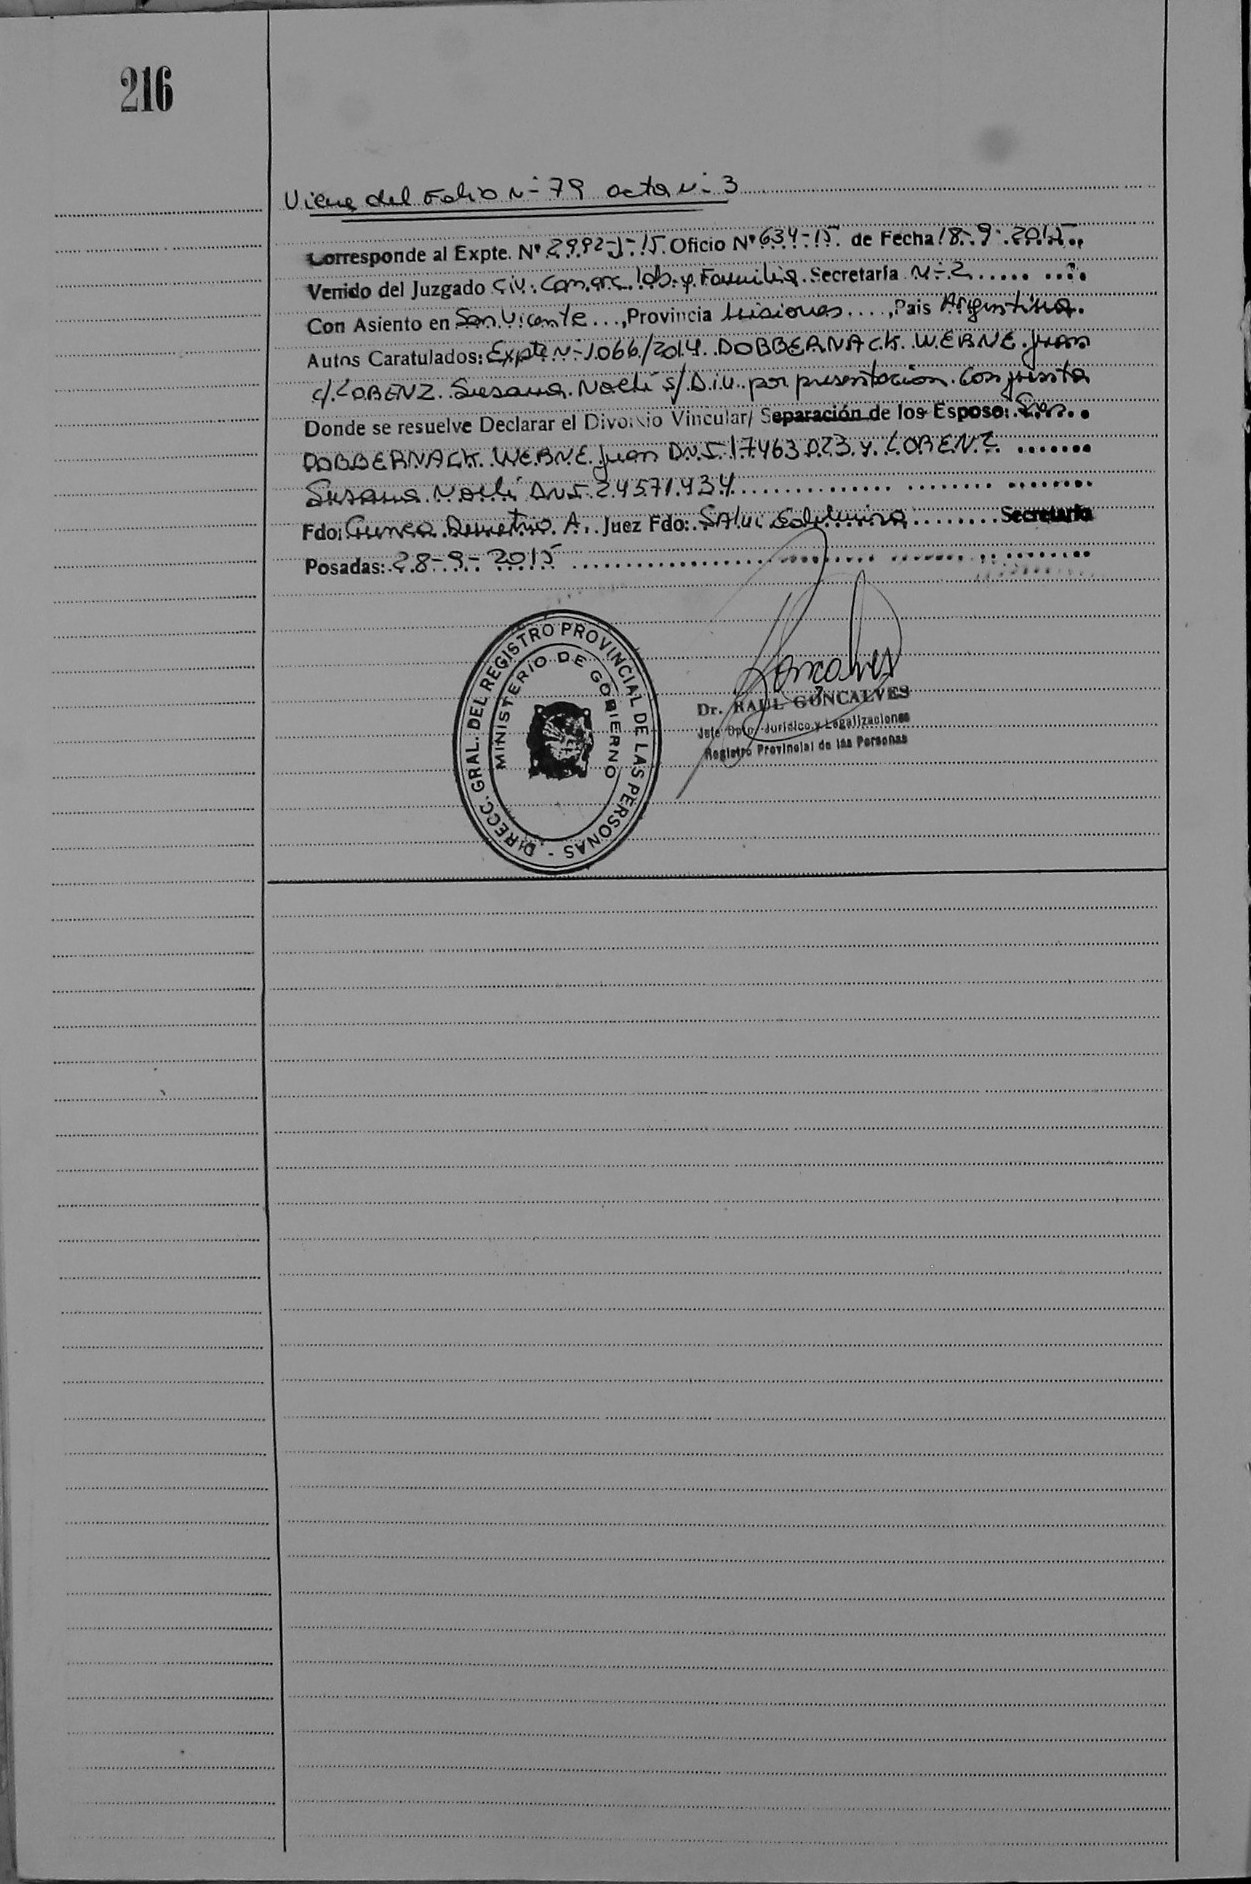 216
Viene del Folio N- 79 acta N- 3
Corresponde al Expte. Nº 2992-J-15. Oficio Nº 634-15. de Fecha 18-9-2015.
Venido del Juzgado Civ. Comerc. lab. y Familia. Secretaría N-2
Con Asiento en San Vicente..., Provincia Misiones...., Pais Argentina.
Autos Caratulados: Expte N-1066/2014. DOBBERNACK. WERNE. Juan
c/. LORENZ. Susana. Noelí s/. D.i.v. por presentacion. Conjunta
Donde se resuelve Declarar el Divorcio Vincular/ Separación de los Esposo:
DOBBERNACK. WERNE. Juan D.N.I. 17463023. y. LORENZ
Susana. Noelí DNI. 24571434
Fdo: Demetrio. A.. Juez Fdo: Secretaria
Posadas: 28-9-2015
DIRECC. GRAL. DEL REGISTRO PROVINCIAL DE LAS PERSONAS -
MINISTERIO DE GOBIERNO
Goncalves
Dr. RAUL GONCALVES
Jefe Dpto. Jurídico y Legalizaciones
Registro Provincial de las Personas